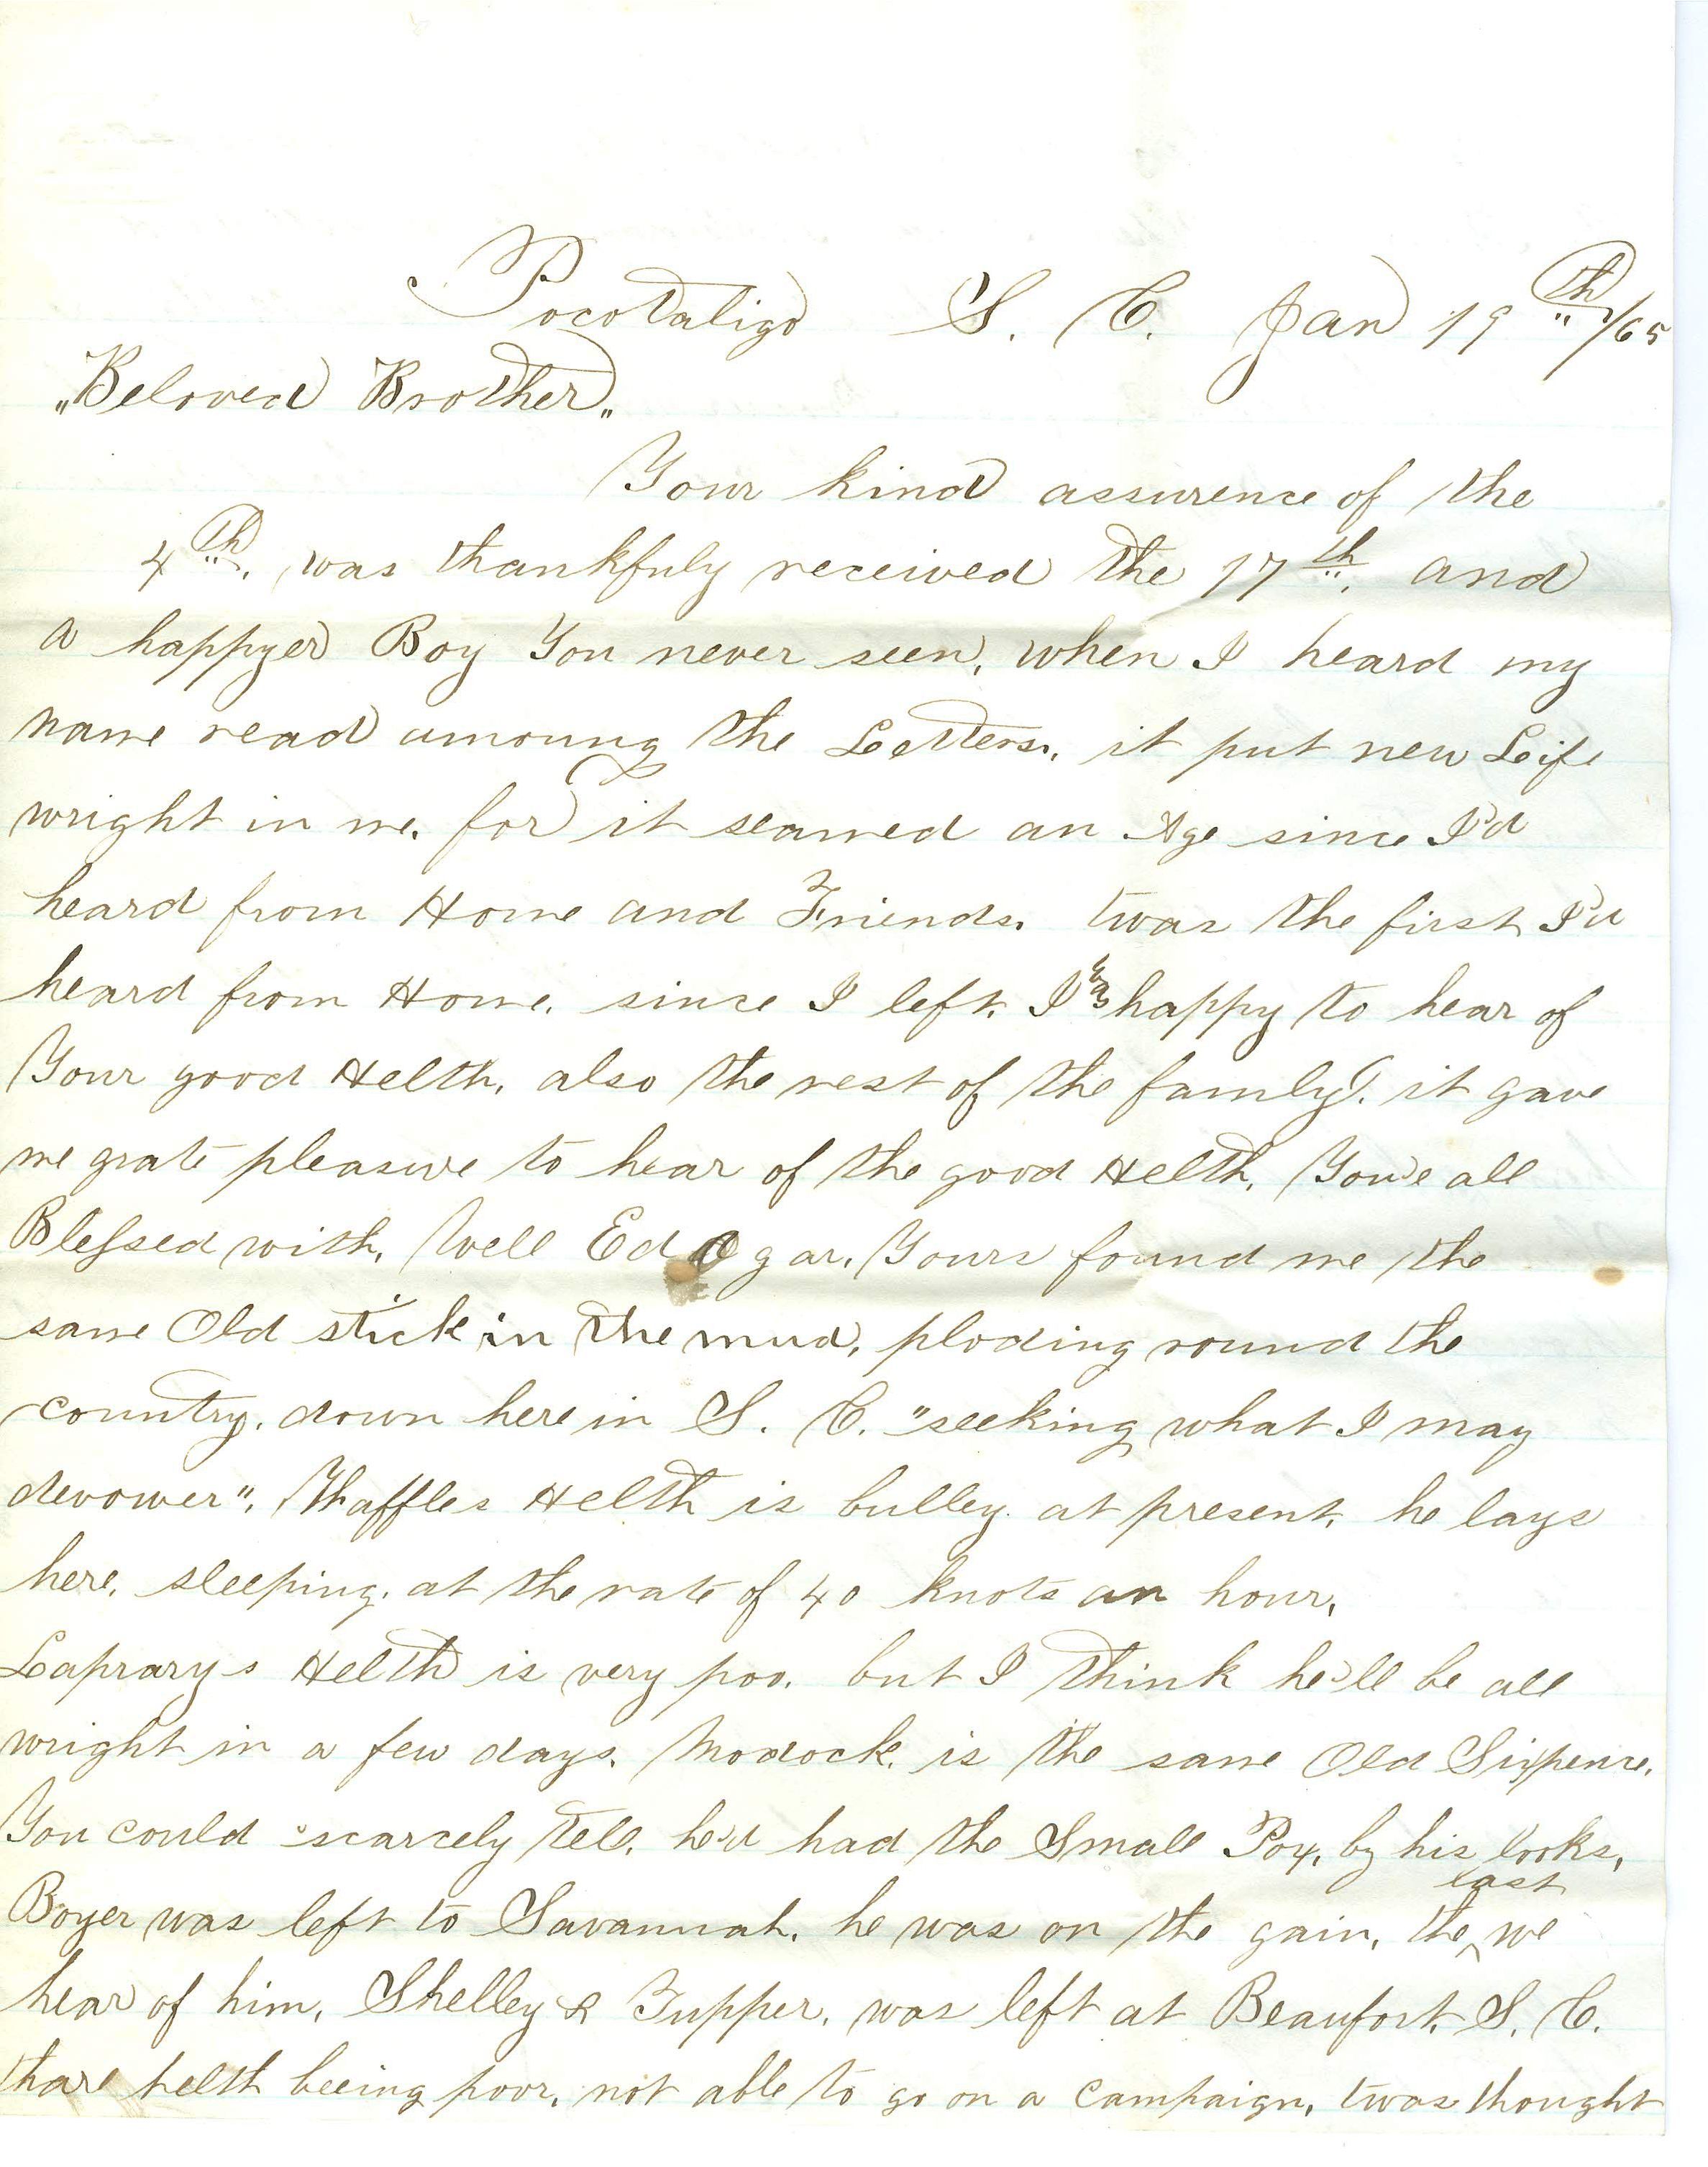 Pocotaligo S. C. Jan 19th /65
"Beloved Brother"
Your kind assurence of the
4th. was thankfuly received the 17th. and
a happyer Boy You never seen, when I heard my
name read amoung the Letters, it put new Leife
wright in me. for it seamed an Age since I'd
heard from Home and Friends. twas the first I'd
heard from Home, since I left. I was happy to hear of
Your good Helth, also the rest of the family. it gave
me grate pleasure to hear of the good Helth, You'e all
Blessed with, Well Edgar, Yours found me the
same Old stick in the mud, ploding round the
country, down here in S. C. "seeking what I may
devower", Thaffles Helth is bulley at present, he lays
here, sleeping, at the rate of 40 knots an hour,
Laprarys Helth is very poo. but I think he'll be all
wright in a few days. Modock, is the same Old Sixpence,
You could scarcely tell, he'd had the Small Pox, by his looks,
Boyer was left to Savannah, he was on the gain, the last we
hear of him, Shelley & Tupper, was left at Beaufort, S. C.
thare helth beeing poor, not able to go on a Campaign, twas thought